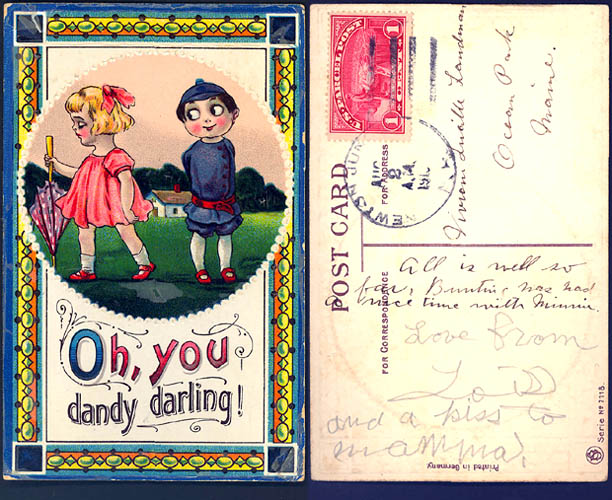 Oh, you
dandy darling!
U.S. PARCEL POST
1 1
NEWTON JUN
AUG
2
A.M.
191
POST CARD
FOR ADDRESS
FOR CORRESPONDENCE
Vivian Lucille Landman
Ocean Park
Maine.
All is well so
far, Bunting has had
nice time with Minnie.
Love from
and a kiss to
mamma.
Printed in Germany
Serie No 2118.